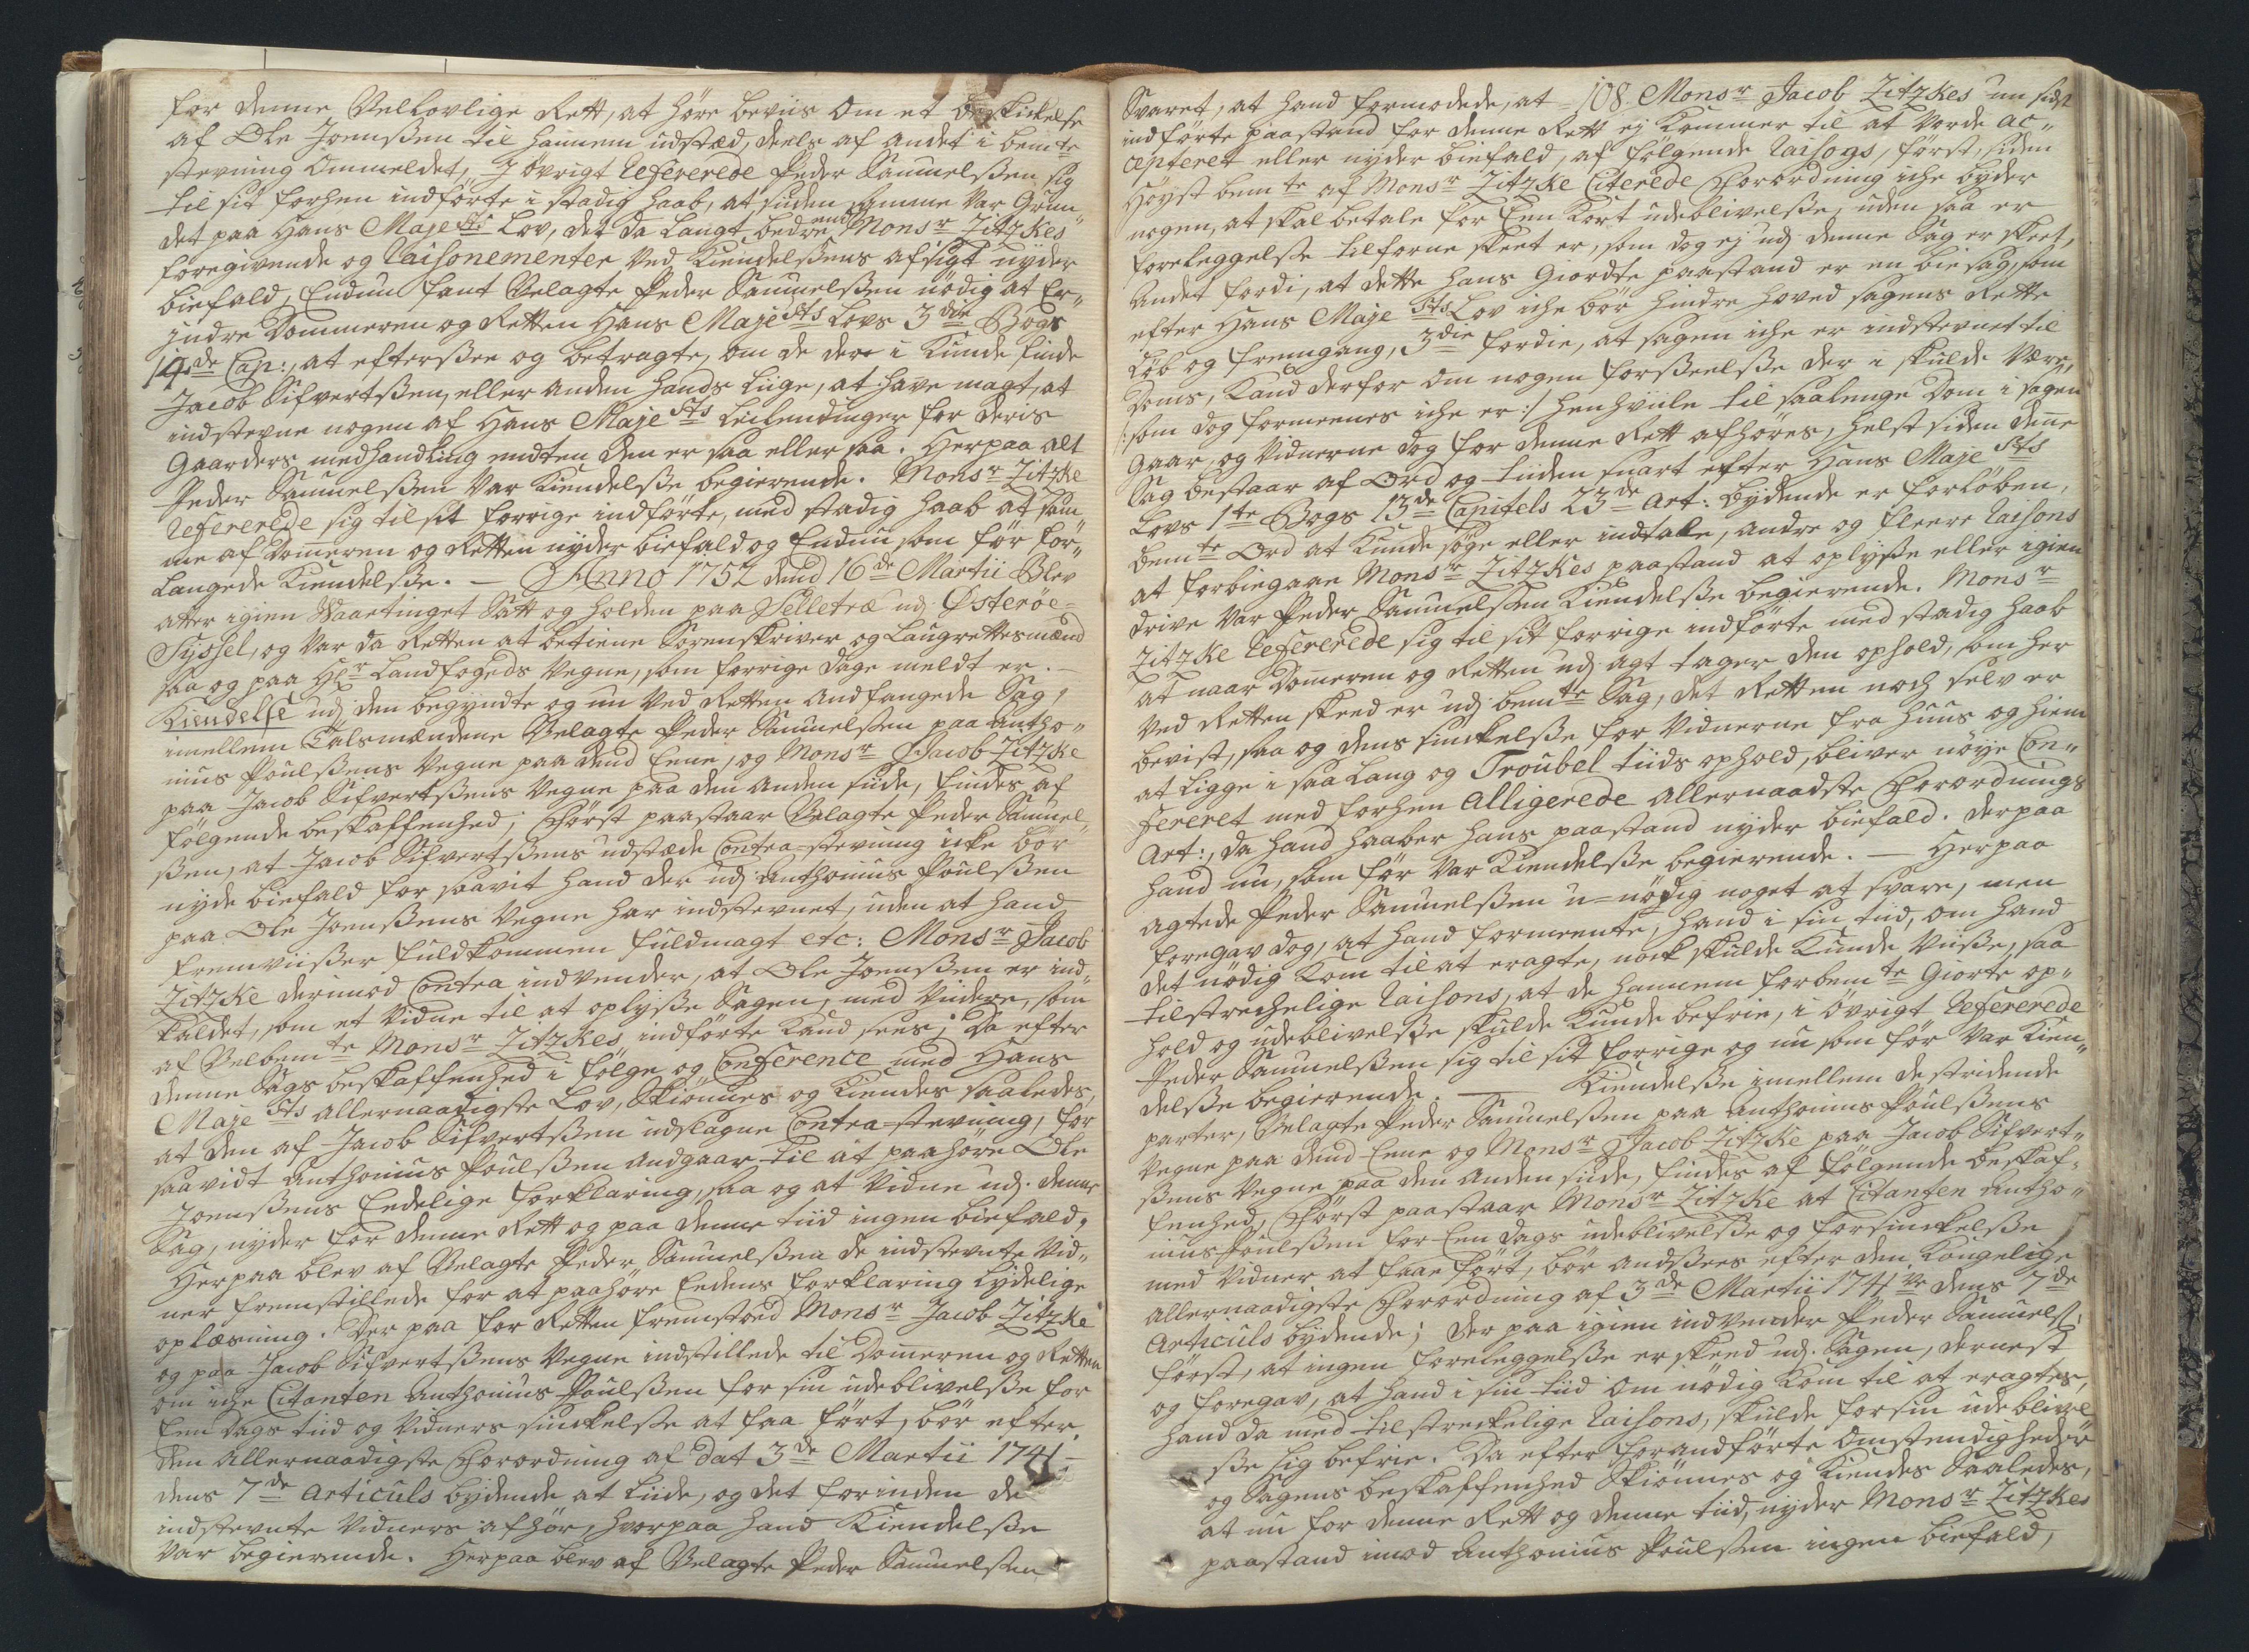 for denne Velloflige Rett, at höre beviis om et
af Ole Joenßen til hannem udstæd, deels af andet i bemte
stevning ommeldet, J övrigt Refererede Peder Samuelßen sig
til sit forhen indförte i stadig haab, at siden samme var Grun„
det paa Hans Majests Lov, det da langt bedre end Monsr Zitzkes
foregivende og Raisonementer ved Kiendelßens afsigt nyder
biefald, Endnu fant Velagte Peder Samuelßen nödig at Er„
jndre Dommeren og Retten Hans Majests Lovs 3die Bogs
14de Cap:, at efterßee og betragte, om de der i Kunde finde
Jacob Sifvertßen, eller anden hands Liige, at have magt, at
indstevne nogen af Hans Majests Leilendinger for deris
Gaarders medhandling endten den er saa eller saa. Herpaa alt
Peder Samuelßen var Kiendelße begierende. Monsr Zitzke
Refererede sig til sit forrige indförte, med stadig haab at sam
me af Domeren og Retten nyder biefald og Endnu som för for„
langede Kiendelße. — Anno 1752 dend 16de Martii Blev
atter igien Waartinget Satt og holden paa Selletræ udj Österöe=
Syssel, og var da Retten at betiene Sorenskriver og Laugrettesmænd
saa og paa Hr Landfogeds Vegne, som forrige dage meldt er. —
Kiendelße udj den begyndte og nu ved Retten andfangede Sag,
imellem Talsmændene Velagte Peder Samuelßen paa Antho„
nius Poulßens Vegne paa dend Eene, og Monsr Jacob Zitzke
paa Jacob Sifvertßens Vegne paa den anden siide, findes af
fölgende beskaffenhed; Först paastaar Velagte Peder Samuel„
ßen, at Jacob Sifvertßens udstæde Contra=stevning icke bör
nyde biefald for saavit hand der udj Anthonius Poulßen
paa Ole Joenßens Vegne har indstevnet, uden at hand
fremviißer fuldkommen fuldmagt etc: Monsr Jacob
Zitzke dermod Contra indvender, at Ole Joenßen er ind„
kaldet, som et Vidne til at oplyße Sagen, med Viidere, som
af Velbemte Monsr Zitzkes, indförte Kand sees; Da efter
denne Sags beskaffenhed i fölge og Conference med Hans
Majests allernaadigste Lov, Skiönnes og Kiendes saaledes,
at den af Jacob Sifvertßen udtagne Contra=stevning, for
saavidt Anthonius Poulßen andgaar til at paahöre Ole
Joenßens Eedelige forklaring, saa og at Vidne udj denne
Sag, nyder for denne Rett og paa denne tiid ingen biefald.
Herpaa blev af Velagte Peder Samuelßen de indstevnte Vid„
ner fremstillede for at paahöre Eedens forklaring lydelige
oplæsning. Der paa for Retten fremstoed Monsr Jacob Zitzke
og paa Jacob Sifvertßens Vegne indstillede til Domeren og Retten
om iche Citanten Anthonius Poulßen for sin udeblivelße for
Een dags tiid og Vidners sinckelße at faa fört, bör efter
den allernaadigste Forordning af dat 3de Martii 1741
dens 7de articuls bydende at Liide, og det forinden de
indstevnte Vidners afhör, hvorpaa hand Kiendelße
var begierende. Herpaa blev af Velagte Peder Samuelßen
108.
Svaret, at hand formodede, at Monsr Jacob Zitzkes nu sidst
indförte paastand for denne Rett ej Kommer til at vorde ac„
cepteret eller nyder biefald, af fölgende Raisons, först, siden
Höyst bemte af Monsr Zitzke Citerede Forordning iche byder
nogen, at skal betale for Een Kort udeblivelße, uden saa er
foreleggelße tilforne skeet er, som dog ej udj denne Sag er skeet,
Andet fordi, at dette hans Giordte paastand er en bie sag, som
efter Hans Majests Lov iche bör hindre hoved sagens Rette
Löb og fremgang, 3die fordie, at sagen iche er indstevnet til
doms, Kand derfor om nogen forßeelße der i skulde være,
/: som dog formeenes iche er :/ henhviile til saalenge dom i sagen
gaar, og Vidnerne dog for denne Rett afhöres, helst siden denne
Sag bestaar af Ord og tiiden snart efter Hans Majests
Lovs 1te Bogs 13de Capitels 23de Art: bydende er forlöben,
bemte Ord at Kunde söge eller indtale, andre og fleere Raisons
at forbiegaae Monsr Zitzkes paastand at oplyße eller igien
drive var Peder Samuelßen Kiendelße begierende. Monsr
Zitzke Refererede sig til sit forrige indförte med stadig haab
at naar Domeren og Retten udj agt tager den ophold, som her
ved Retten skeed er udj bemte Sag, det Retten noch selv er
bevist, saa og dens sinckelße for Vidnerne fra Huus og hiem
at Ligge i saa Lang og Troubel tiids ophold, bliver nöye Con„
fereret med forhen Alligerede allernaadste Forordnings
Art:, da hand haaber hans paastand nyder biefald. Derpaa
hand nu, som för var Kiendelße begierende. — Herpaa
agtede Peder Samuelßen u=nödig noget at svare, men
foregav dog, at hand formeente, hand i sin tiid, om hand
det nödig Kom til at eragte, nock skulde Kunde viiße, saa
tilstrechelige Raisons, at de hannem forbemte Giorte op„
hold og udeblivelße skulde Kunde befrie, i övrigt Refererede
Peder Samuelßen sig til sit forrige og nu som för var Kien„
delße begierende. — Kiendelße imellem de stridende
parter, Velagte Peder Samuelßen paa Anthonius Poulßens
Vegne paa dend Eene og Monsr Jacob Zitzke paa Jacob Sifvert„
ßens Vegne paa den anden siide, findes af fölgende beskaf„
fenhed, Först paastaar Monsr Zitzke at Citanten Antho„
nius Poulßen for Een dags udeblivelße og forsinckelße
med Vidner at faae fört, bör andßees efter den Kongelige
allernaadigste Forordning af 3de Martii 1741 dens 7de
Articuls bydende; der paa igien indvender Peder Samuelß:
först, at ingen foreleggelße er skeed udj Sagen, dernest
og foregav, at hand i sin tiid om nödig Kom til at eragtes,
hand da med tilstreckelige Raisons, skulde for sin udeblivel
ße sig befrie. Da efter forandförte omstendigheder
og Sagens beskaffenhed Skiönnes og Kiendes Saaledes,
at nu for denne Rett og denne tiid, nyder Monsr Zitzkes
paastand imod Anthonius Poulßen ingen biefald,